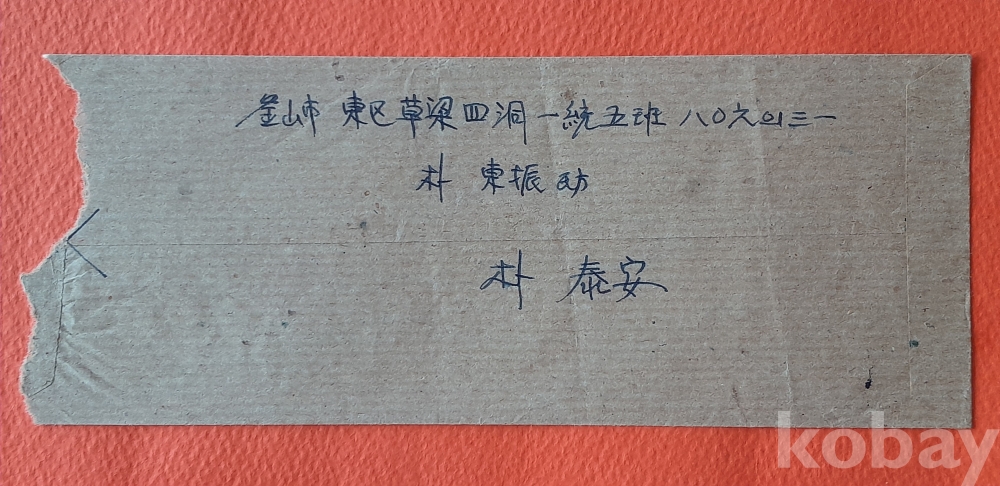 釜山市 東区草梁四洞一統五班 八〇六의三一
朴 東振 방
朴 泰安
kobay